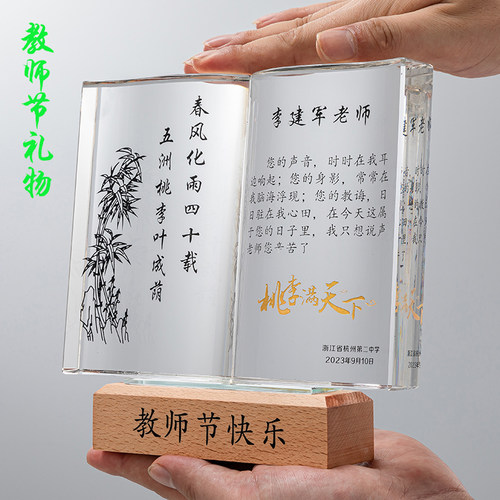 教师节礼物
春风化雨四十载
五洲桃李叶成荫
李建军老师
您的声音，时时在我耳
边响起；您的身影，常常在
我脑海浮现；您的教诲，日
日驻在我心田，在今天这属
于您的日子里，我只想说声
老师您辛苦了
桃李满天下
浙江省杭州第二中学
2023年9月10日
教师节快乐